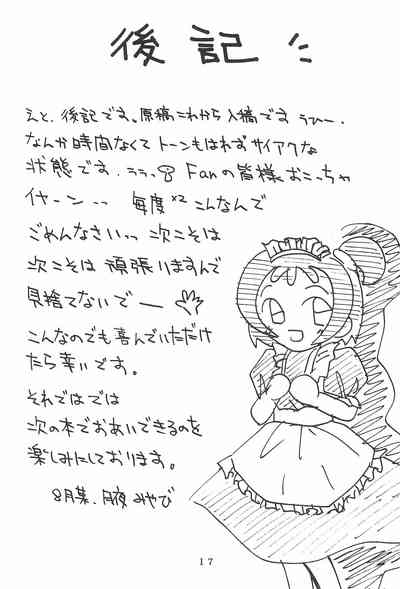 後記
えと、後記です。原稿これから入稿です うひー、
なんか時間なくてトーンもはれずサイアクな
状態です、ううっ Fanの皆様おこっちゃ
イヤーンっっ 毎度×2こんなんで
ごめんなさいっっ 次こそは
次こそは頑張いますんで
見捨てないでー
こんなのでも喜んでいただけ
たら幸いです。
それではでは
次の本でおあいできるのを
楽しみにしております。
8月某、月夜みやび
17